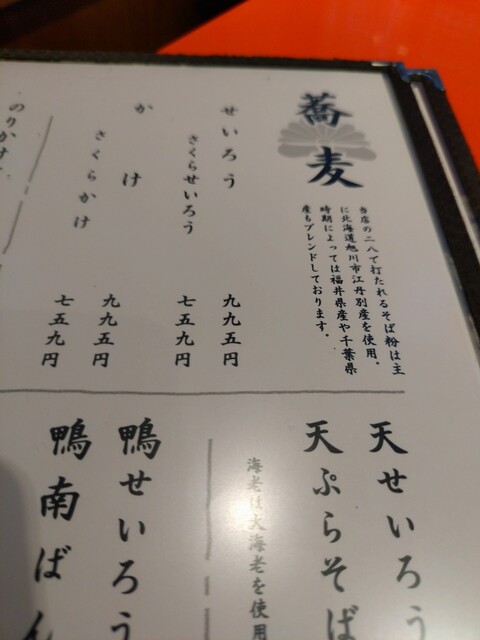 蕎麦
当店の二八で打たれるそば粉は主
に北海道旭川市江丹別産を使用。
時期によっては福井県産や千葉県
産もブレンドしております。
せいろう 九九五円
さくらせいろう 七五九円
かけ 九九五円
さくらかけ 七五九円
のりかけ
天せいろう
天ぷらそば
海老は大海老を使用
鴨せいろう
鴨南ばん